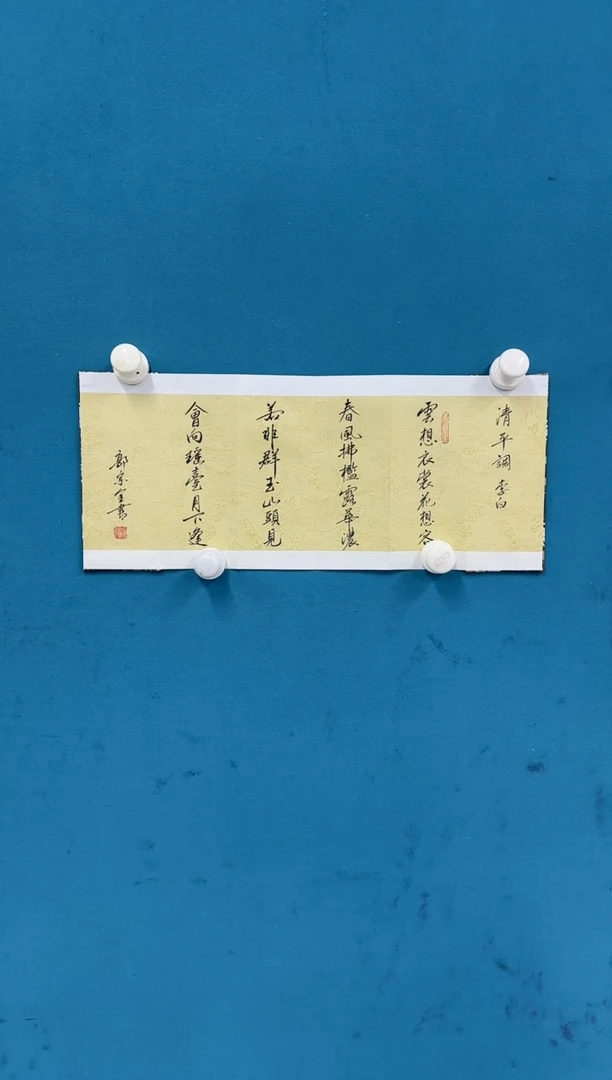 清平調 李白
雲想衣裳花想容
春風拂檻露華濃
若非群玉山頭見
會向瑤臺月下逢
郭宗全書